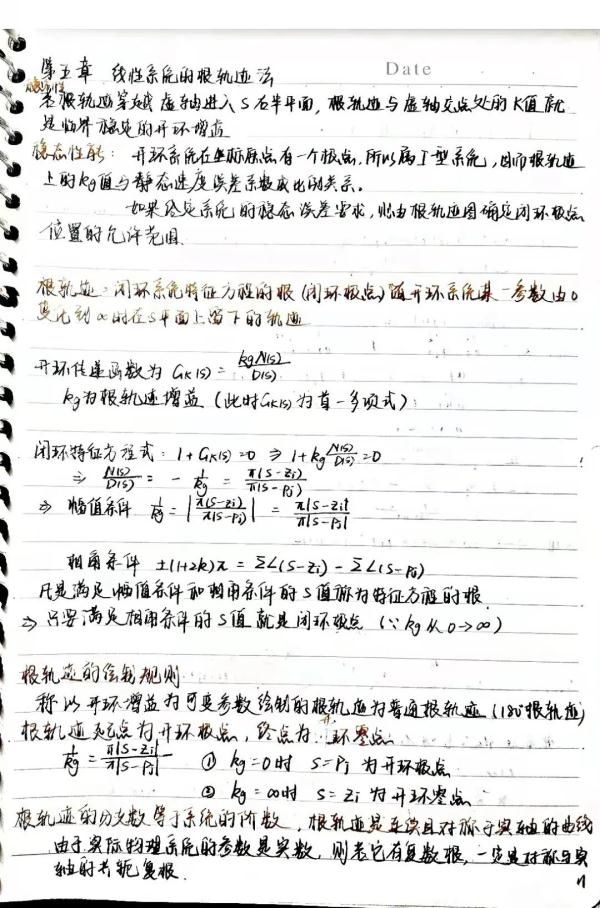 第五章 线性系统的根轨迹法
Date
稳定性
若根轨迹穿越虚轴进入S右半平面,根轨迹与虚轴交点处的K值就
是临界稳定的开环增益
稳态性能: 开环系统在坐标原点有一个极点,所以属I型系统,因而根轨迹
上的kg值与静态速度误差系数成比例关系。
如果给定系统的稳态误差要求,则由根轨迹图确定闭环极点
位置的允许范围.
根轨迹:闭环系统特征方程的根(闭环极点)随开环系统某一参数由0
变化到∞时在S平面上留下的轨迹
开环传递函数为 GK(s) = kgN(s)/D(s)
kg为根轨迹增益 (此时GK(s)为首一多项式)
闭环特征方程式: 1+GK(s)=0 ⇒ 1+kg N(s)/D(s)=0
⇒ N(s)/D(s) = - 1/kg = π(s-zi)/π(s-pj)
⇒ 幅值条件 1/kg = |π(s-zi)/π(s-pj)| = π|s-zi|/π|s-pj|
相角条件 ±(1+2k)π = Σ∠(s-zi) - Σ∠(s-pj)
凡是满足幅值条件和相角条件的S值称为特征方程的根
⇒ 只要满足相角条件的S值就是闭环极点 (∵ kg从0→∞)
根轨迹的绘制规则
称以开环增益为可变参数绘制的根轨迹为普通根轨迹 (180°根轨迹)
根轨迹起点为开环极点,终点为开环零点
1/kg = π|s-zi|/π|s-pj| ① kg=0时 S=Pj 为开环极点
② kg=∞时 S=Zi 为开环零点
根轨迹的分支数等于系统的阶数,根轨迹是连续且对称于实轴的曲线
由于实际物理系统的参数是实数,则若它有复数根,一定是对称与实
轴的共轭复根.